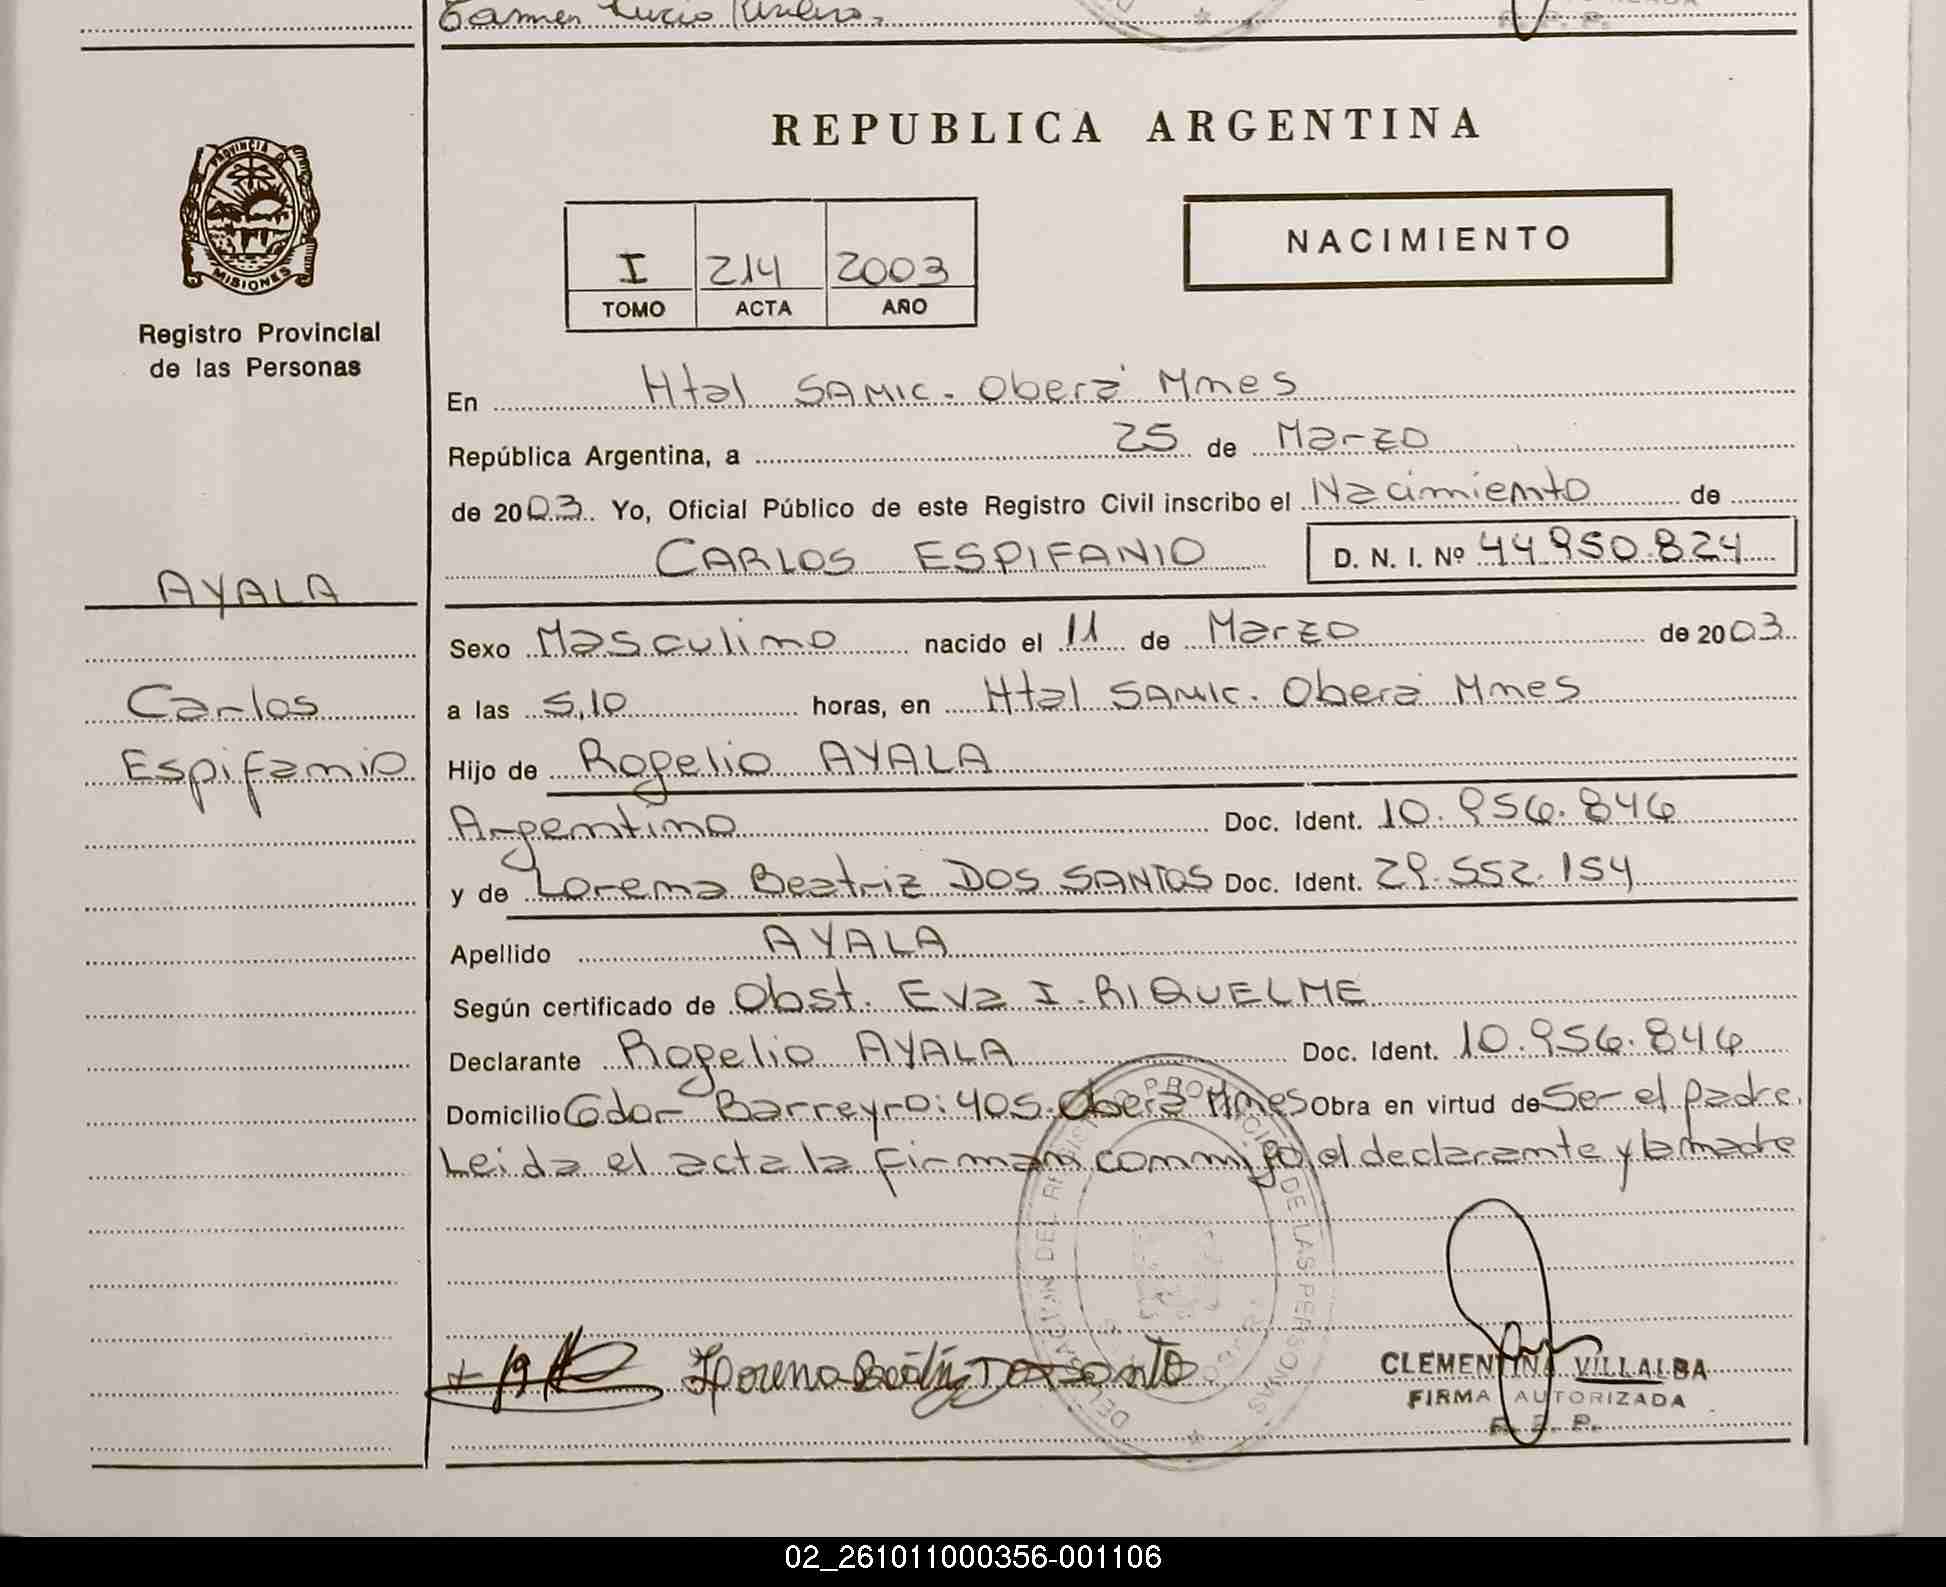 Carmen Lucia
REPUBLICA ARGENTINA
PROVINCIA DE
MISIONES
Registro Provincial
de las Personas
I 214 2003
TOMO ACTA AÑO
NACIMIENTO
En Htal SAMIC. Oberá Mnes
República Argentina, a 25 de Marzo
de 2003. Yo, Oficial Público de este Registro Civil inscribo el Nacimiento de
CARLOS ESPIFANIO D. N. I. Nº 44.950.824
AYALA
Carlos
Espifanio
Sexo Masculino nacido el 11 de Marzo de 2003.
a las 5,10 horas, en Htal SAMIC. Oberá Mnes
Hijo de Rogelio AYALA
Argentino Doc. Ident. 10.956.846
y de Lorena Beatriz DOS SANTOS Doc. Ident. 29.552.154
Apellido AYALA
Según certificado de Obst. Eva I. RIQUELME
Declarante Rogelio AYALA Doc. Ident. 10.956.846
Domicilio Gdor Barreyro: 405. Oberá Mnes Obra en virtud de Ser el padre.
Leida el acta la firman conmigo, el declarante y la madre
Lorena Beatriz Dos Santo
CLEMENTINA VILLALBA
FIRMA AUTORIZADA
R. P. P.
DEL REGISTRO PROVINCIAL DE LAS PERSONAS
02_261011000356-001106